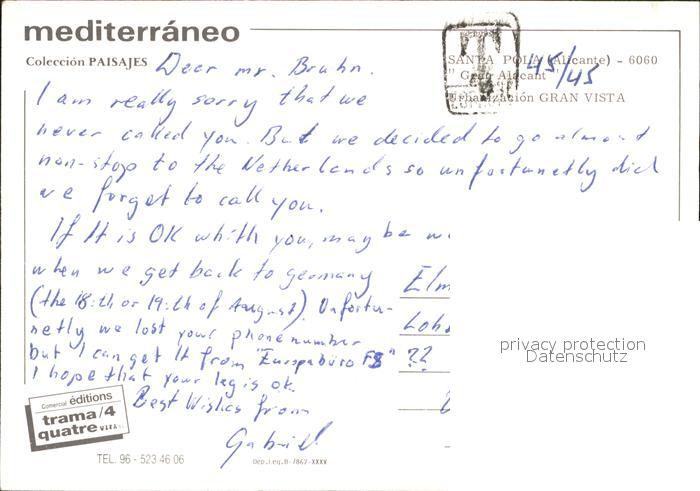 mediterráneo
Colección PAISAJES
SANTA POLA (Alicante) - 6060
"Gran Alacant"
Urbanización GRAN VISTA
T
45/45
Dear mr. Bruhn.
I am really sorry that we
never called you. But we decided to go almost
non-stop to the Netherlands so unfortunetly did
we forget to call you.
If It is OK whith you, may be we
when we get back to germany
(the 18:th or 19:th of August). Unfortu-
netly we lost your phonenumber
but I can get It from "Europabüro FS"
I hope that your leg is ok.
Best Wishes from
Gabriel
Elm
Loho
??
privacy protection
Datenschutz
Comercial éditions
trama/4
quatre
TEL. 96 - 523 46 06
Dep. Leg. B-7867-XXXV